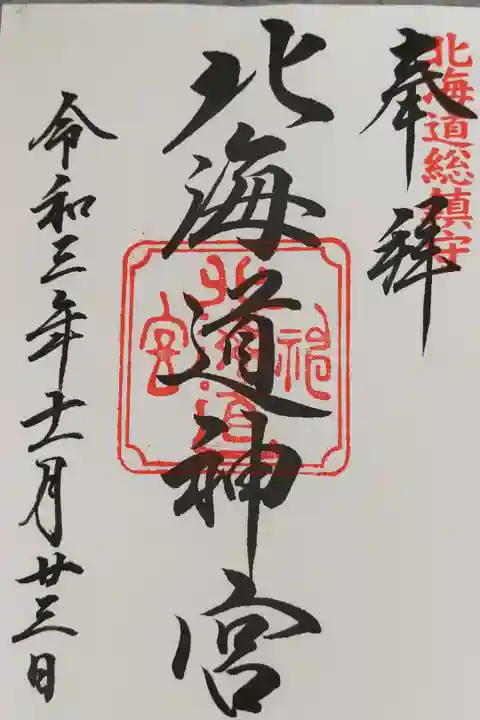 北海道総鎮守
奉拝
北海道神宮
令和三年十一月廿三日